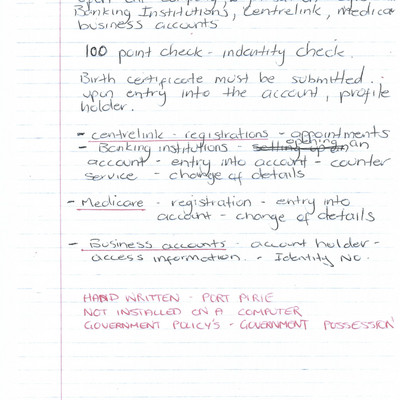 Banking Institutions, Centrelink, Medicare
business accounts
100 point check - indentity check.
Birth certificate must be submitted.
upon entry into the account, profile
holder.
- centrelink - registrations - appointments
- Banking institutions - setting up an opening an
account - entry into account - counter
service - change of details
- Medicare - registration - entry into
account - change of details
- Business accounts - account holder -
access information. - Identity No.
HAND WRITTEN - PORT PIRIE
NOT INSTALLED ON A COMPUTER
GOVERNMENT POLICY'S - GOVERNMENT POSSESSION